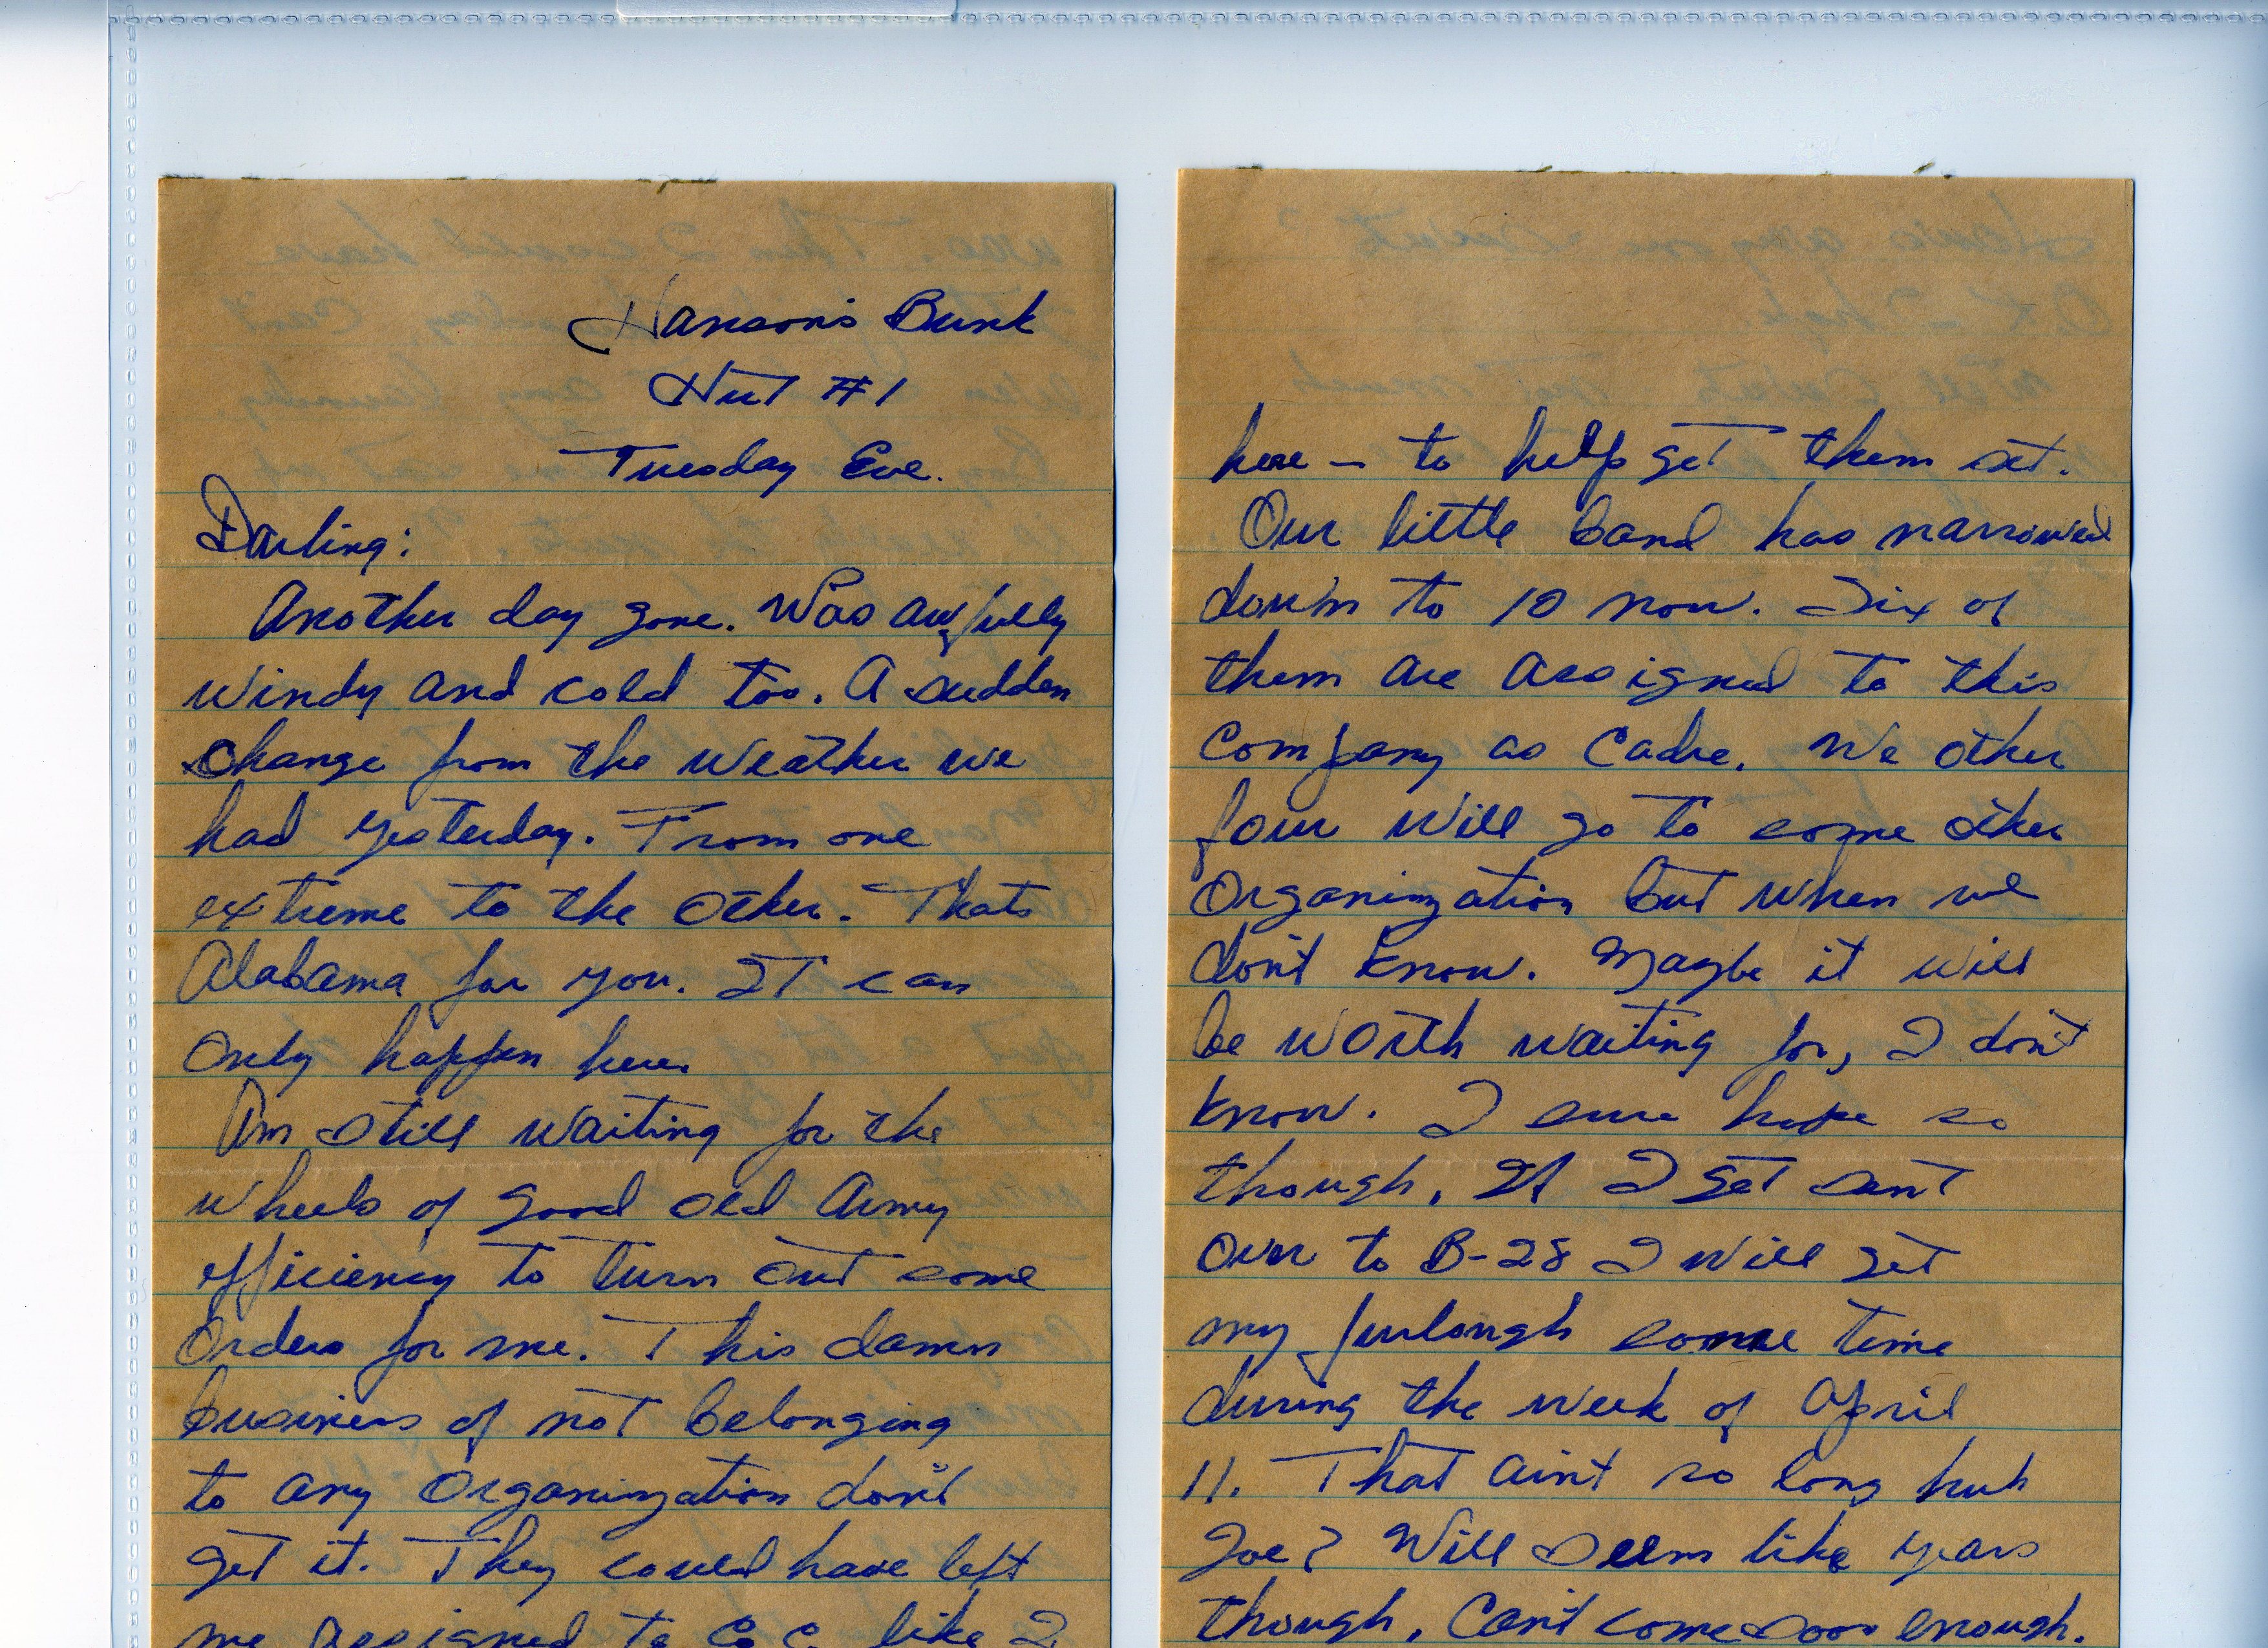 Hanson's Bunk
Hut #1
Tuesday Eve.
Darling:
Another day gone. Was awfully
windy and cold too. A sudden
change from the weather we
had yesterday. From one
extreme to the other. Thats
Alabama for you. It can
only happen here.
Am still waiting for the
wheels of good old Army
efficiency to turn out some
orders for me. This damn
business of not belonging
to any organization don't
get it. They could have left
me assigned to Co C. like I
here - to help get them set.
Our little band has narrowed
down to 10 now. Six of
them are assigned to this
company as Cadre. We other
four will go to some other
organization but when we
don't know. Maybe it will
be worth waiting for, I don't
know. I sure hope so
though. If I get sent
over to B-28 I will get
my furlough some time
during the week of April
11. That ain't so long huh
Joe? Will seem like years
though. Can't come soon enough.